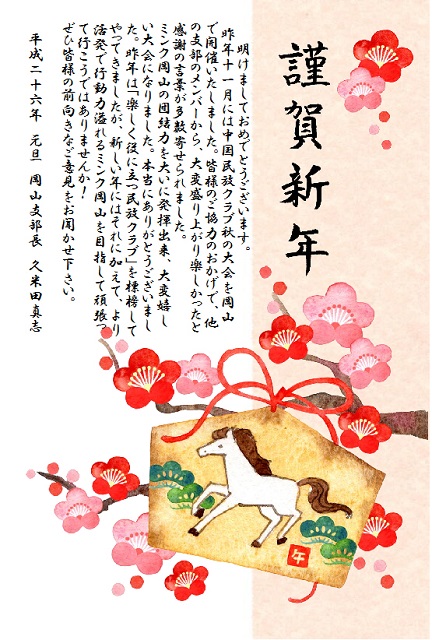 謹賀新年
明けましておめでとうございます。
昨年十一月には中国民放クラブ秋の大会を岡山
で開催いたしました。皆様のご協力のおかげで、他
の支部のメンバーから、大変盛り上がり楽しかったと
感謝の言葉が多数寄せられました。
ミンク岡山の団結力を大いに発揮出来、大変嬉し
い大会になりました。本当にありがとうございまし
た。昨年は「楽しく役に立つ民放クラブ」を標榜して
やってきましたが、新しい年にはそれに加えて、より
活発で行動力溢れるミンク岡山を目指して頑張っ
て行こうではありませんか！
ぜひ皆様の前向きなご意見をお聞かせ下さい。
平成二十六年 元旦 岡山支部長 久米田真志
午